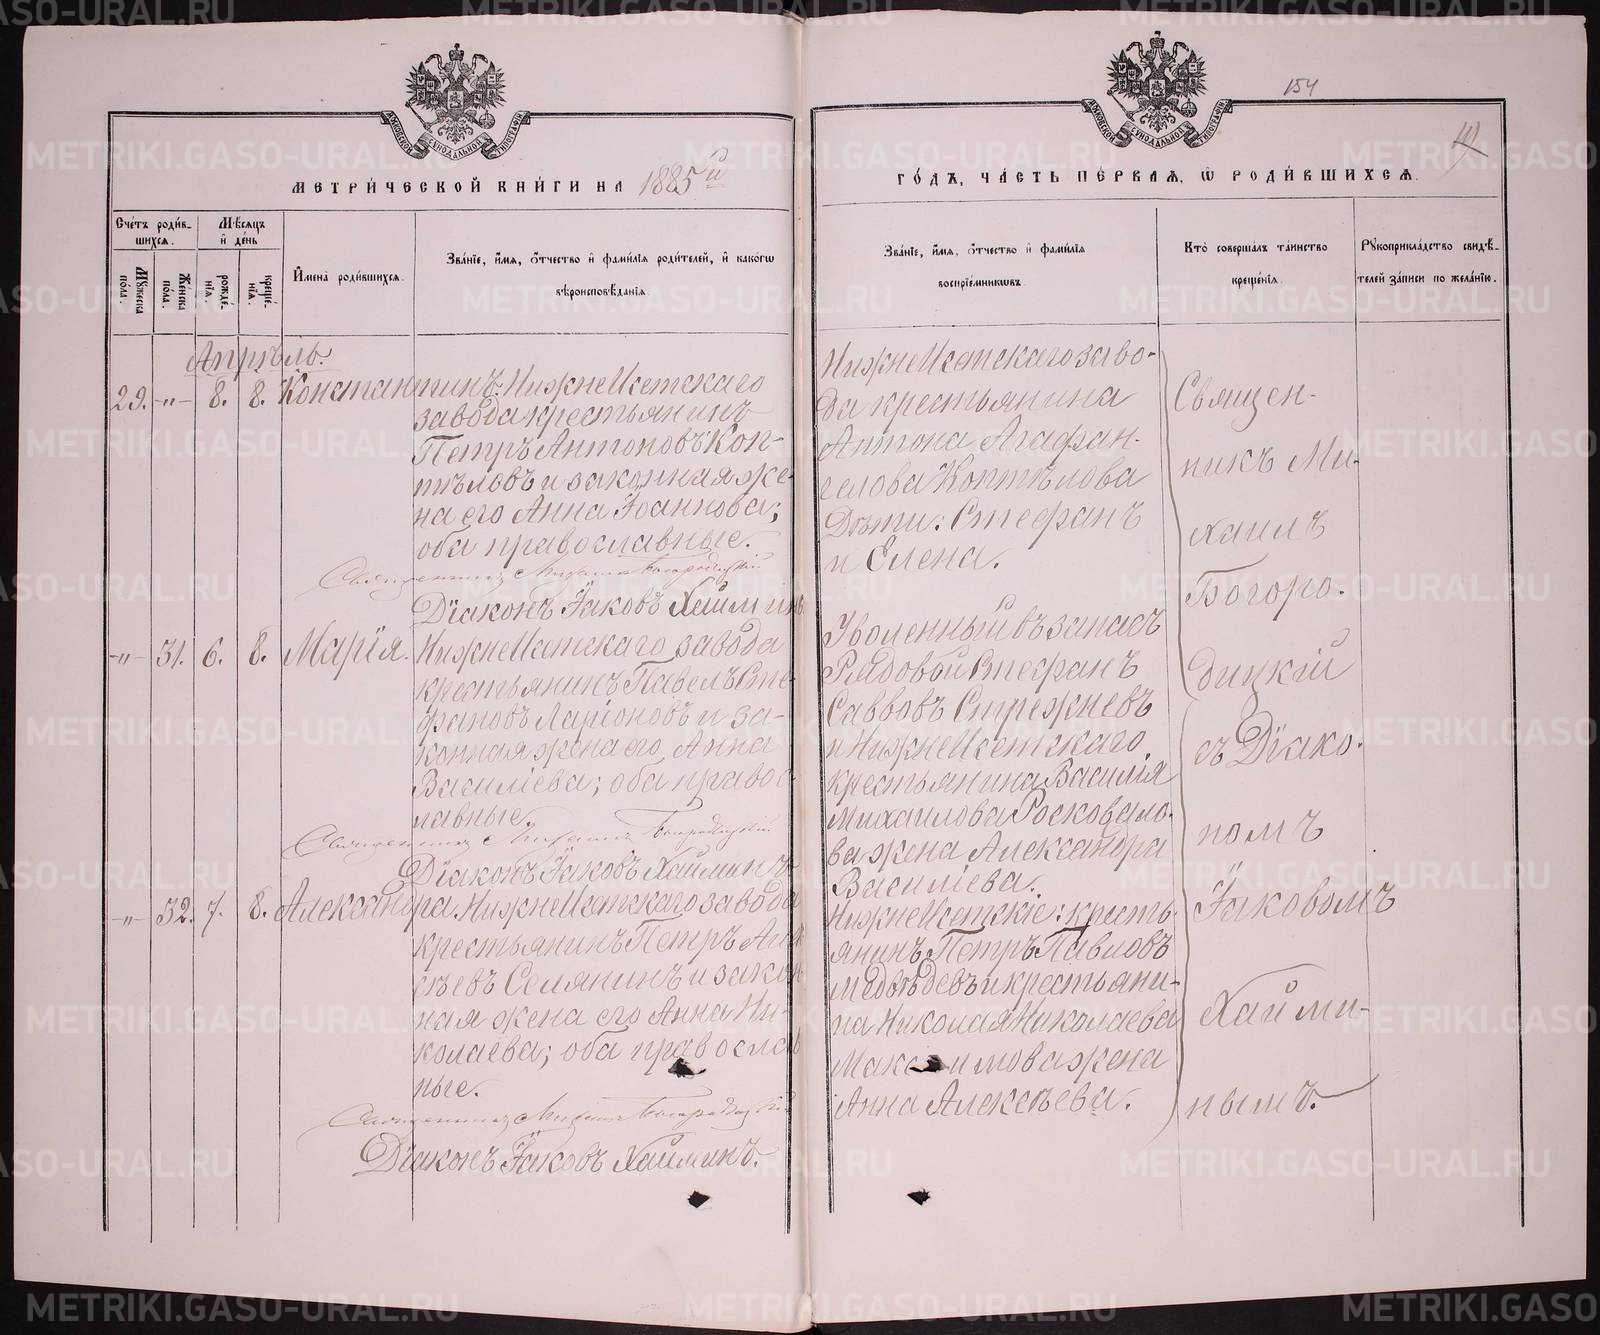 154
МЕТРИ́ЧЕСКОЙ КНИ́ГИ НА 1885й
ГО́ДЪ, ЧА́СТЬ ПЕ́РВАЯ, Ѡ РОДИ́ВШИХСЯ.
Сче́тъ роди́в-
шихся.
Му́жеска по́ла.
Же́нска по́ла.
Мѣ́сяцъ
и де́нь
рожде́-
нїя.
креще́-
нїя.
И҆мена̀ роди́вшихся.
Зва́нїе, и҆́мя, ѻ҆́тчество и҆ фами́лїя роди́телей, и҆ како́гѡ
вѣроисповѣ́данїя.
Зва́нїе, и҆́мя, ѻ҆́тчество и҆ фами́лїя
воспрїе́мникѡвъ.
Кто̀ соверша́лъ та́инство
креще́нїя.
Рꙋкоприкла́дство свидѣ́-
телей за́писи по жела́нїю.
Апрѣль.
29. -"- 8. 8. Константинъ.
НижнеИсетскаго
завода крестьянинъ
Петръ Антоновъ Коп-
тѣловъ и законная же-
на его Анна Іоаннова;
оба православные.
Священникъ Михаилъ Богородицкій
Дїаконъ Іаковъ Хайминъ
НижнеИсетскаго заво-
да крестьянина
Антона Агафан-
гелова Коптѣлова
Дѣти: Стефанъ
и Елена.
-"- 31. 6. 8. Марїя.
НижнеИсетскаго завода
крестьянинъ Павелъ Сте-
фановъ Ларіоновъ и за-
конная жена его Анна
Василіева; оба правос-
лавные.
Священникъ Михаилъ Богородицкій
Дїаконъ Іаковъ Хайминъ
Уволенный въ запасъ
Рядовой Стефанъ
Саввовъ Стрежневъ
и НижнеИсетскаго
крестьянина Василія
Михаилова
ва жена Александра
Василіева.
-"- 32. 7. 8. Александра.
НижнеИсетскаго завода
крестьянинъ Петръ Алек
сѣевъ Селянинъ и закон
ная жена его Анна Ни-
колаева; оба православ
ные.
Священникъ Михаилъ Богородицкій
Дїаконъ Іаковъ Хайминъ.
НижнеИсетскіе: кресть-
янинъ Петръ Павловъ
Медвѣдевъ и крестьяни-
на Николая Николаева
Максимова жена
Анна Алексѣева.
Священ-
никъ Ми-
хаилъ
Богоро-
дицкій
съ Дїако-
номъ
Іаковомъ
Хайми-
нымъ.